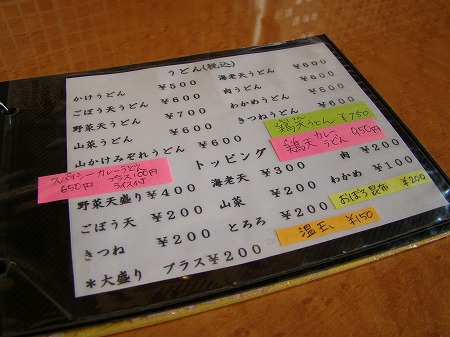 うどん(税込)
かけうどん ¥500
ごぼう天うどん ¥600
野菜天うどん ¥700
山菜うどん ¥600
山かけみぞれうどん ¥600
海老天うどん ¥600
肉うどん ¥600
わかめうどん ¥600
きつねうどん ¥600
鶏天うどん ¥750
鶏天カレーうどん 950円
スパイシーカレーうどん
650円 プラス100円
ライス付
トッピング
野菜天盛り ¥400
ごぼう天 ¥200
きつね ¥200
海老天 ¥300
山菜 ¥200
とろろ ¥200
肉 ¥200
わかめ ¥100
おぼろ昆布 ¥200
温玉 ¥150
*大盛り プラス¥200